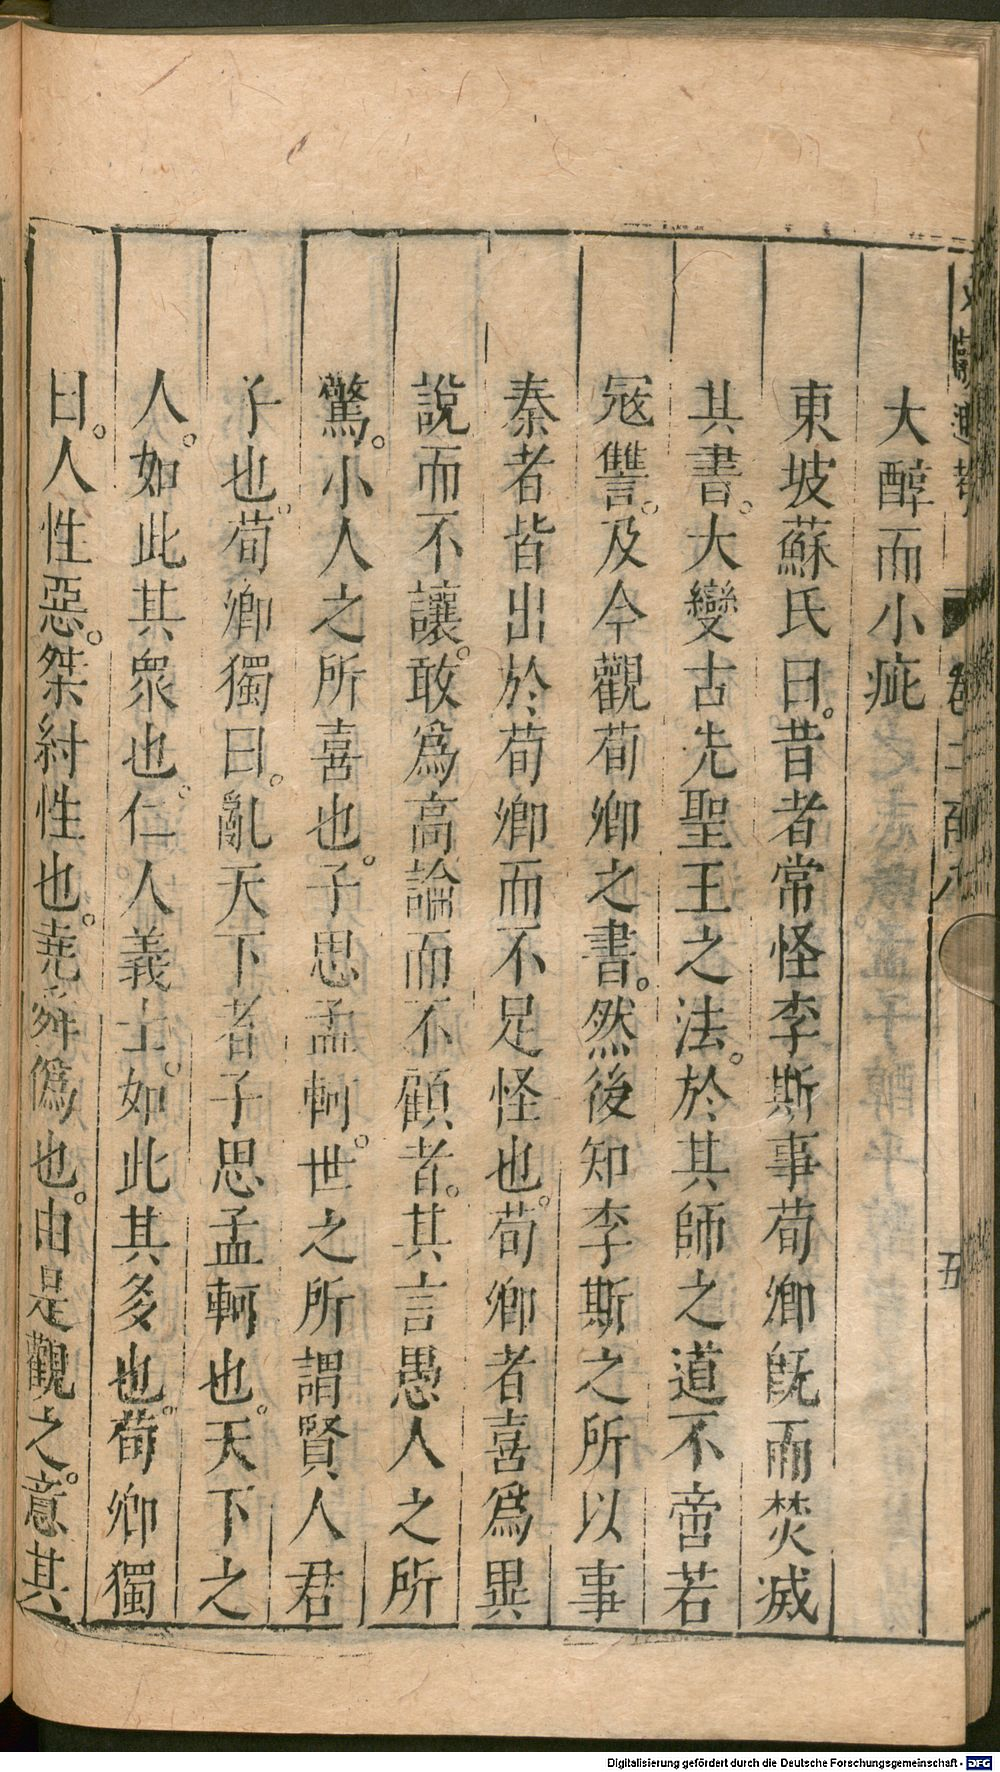 大醇而小疵
東坡蘇氏曰。昔者常怪李斯事荀卿既而焚滅
其書。大變古先聖王之法。於其師之道不啻若
冦讐。及今觀荀卿之書。然後知李斯之所以事
秦者皆出於荀卿而不足怪也。荀卿者喜爲異
說而不讓。敢爲高論而不顧者。其言愚人之所
驚。小人之所喜也。子思孟軻。世之所謂賢人君
子也。荀卿獨曰。亂天下者子思孟軻也。天下之
人。如此其衆也。仁人義士。如此其多也。荀卿獨
曰。人性惡。桀紂性也。堯舜僞也。由是觀之。意其
五
Digitalisierung gefördert durch die Deutsche Forschungsgemeinschaft - DFG